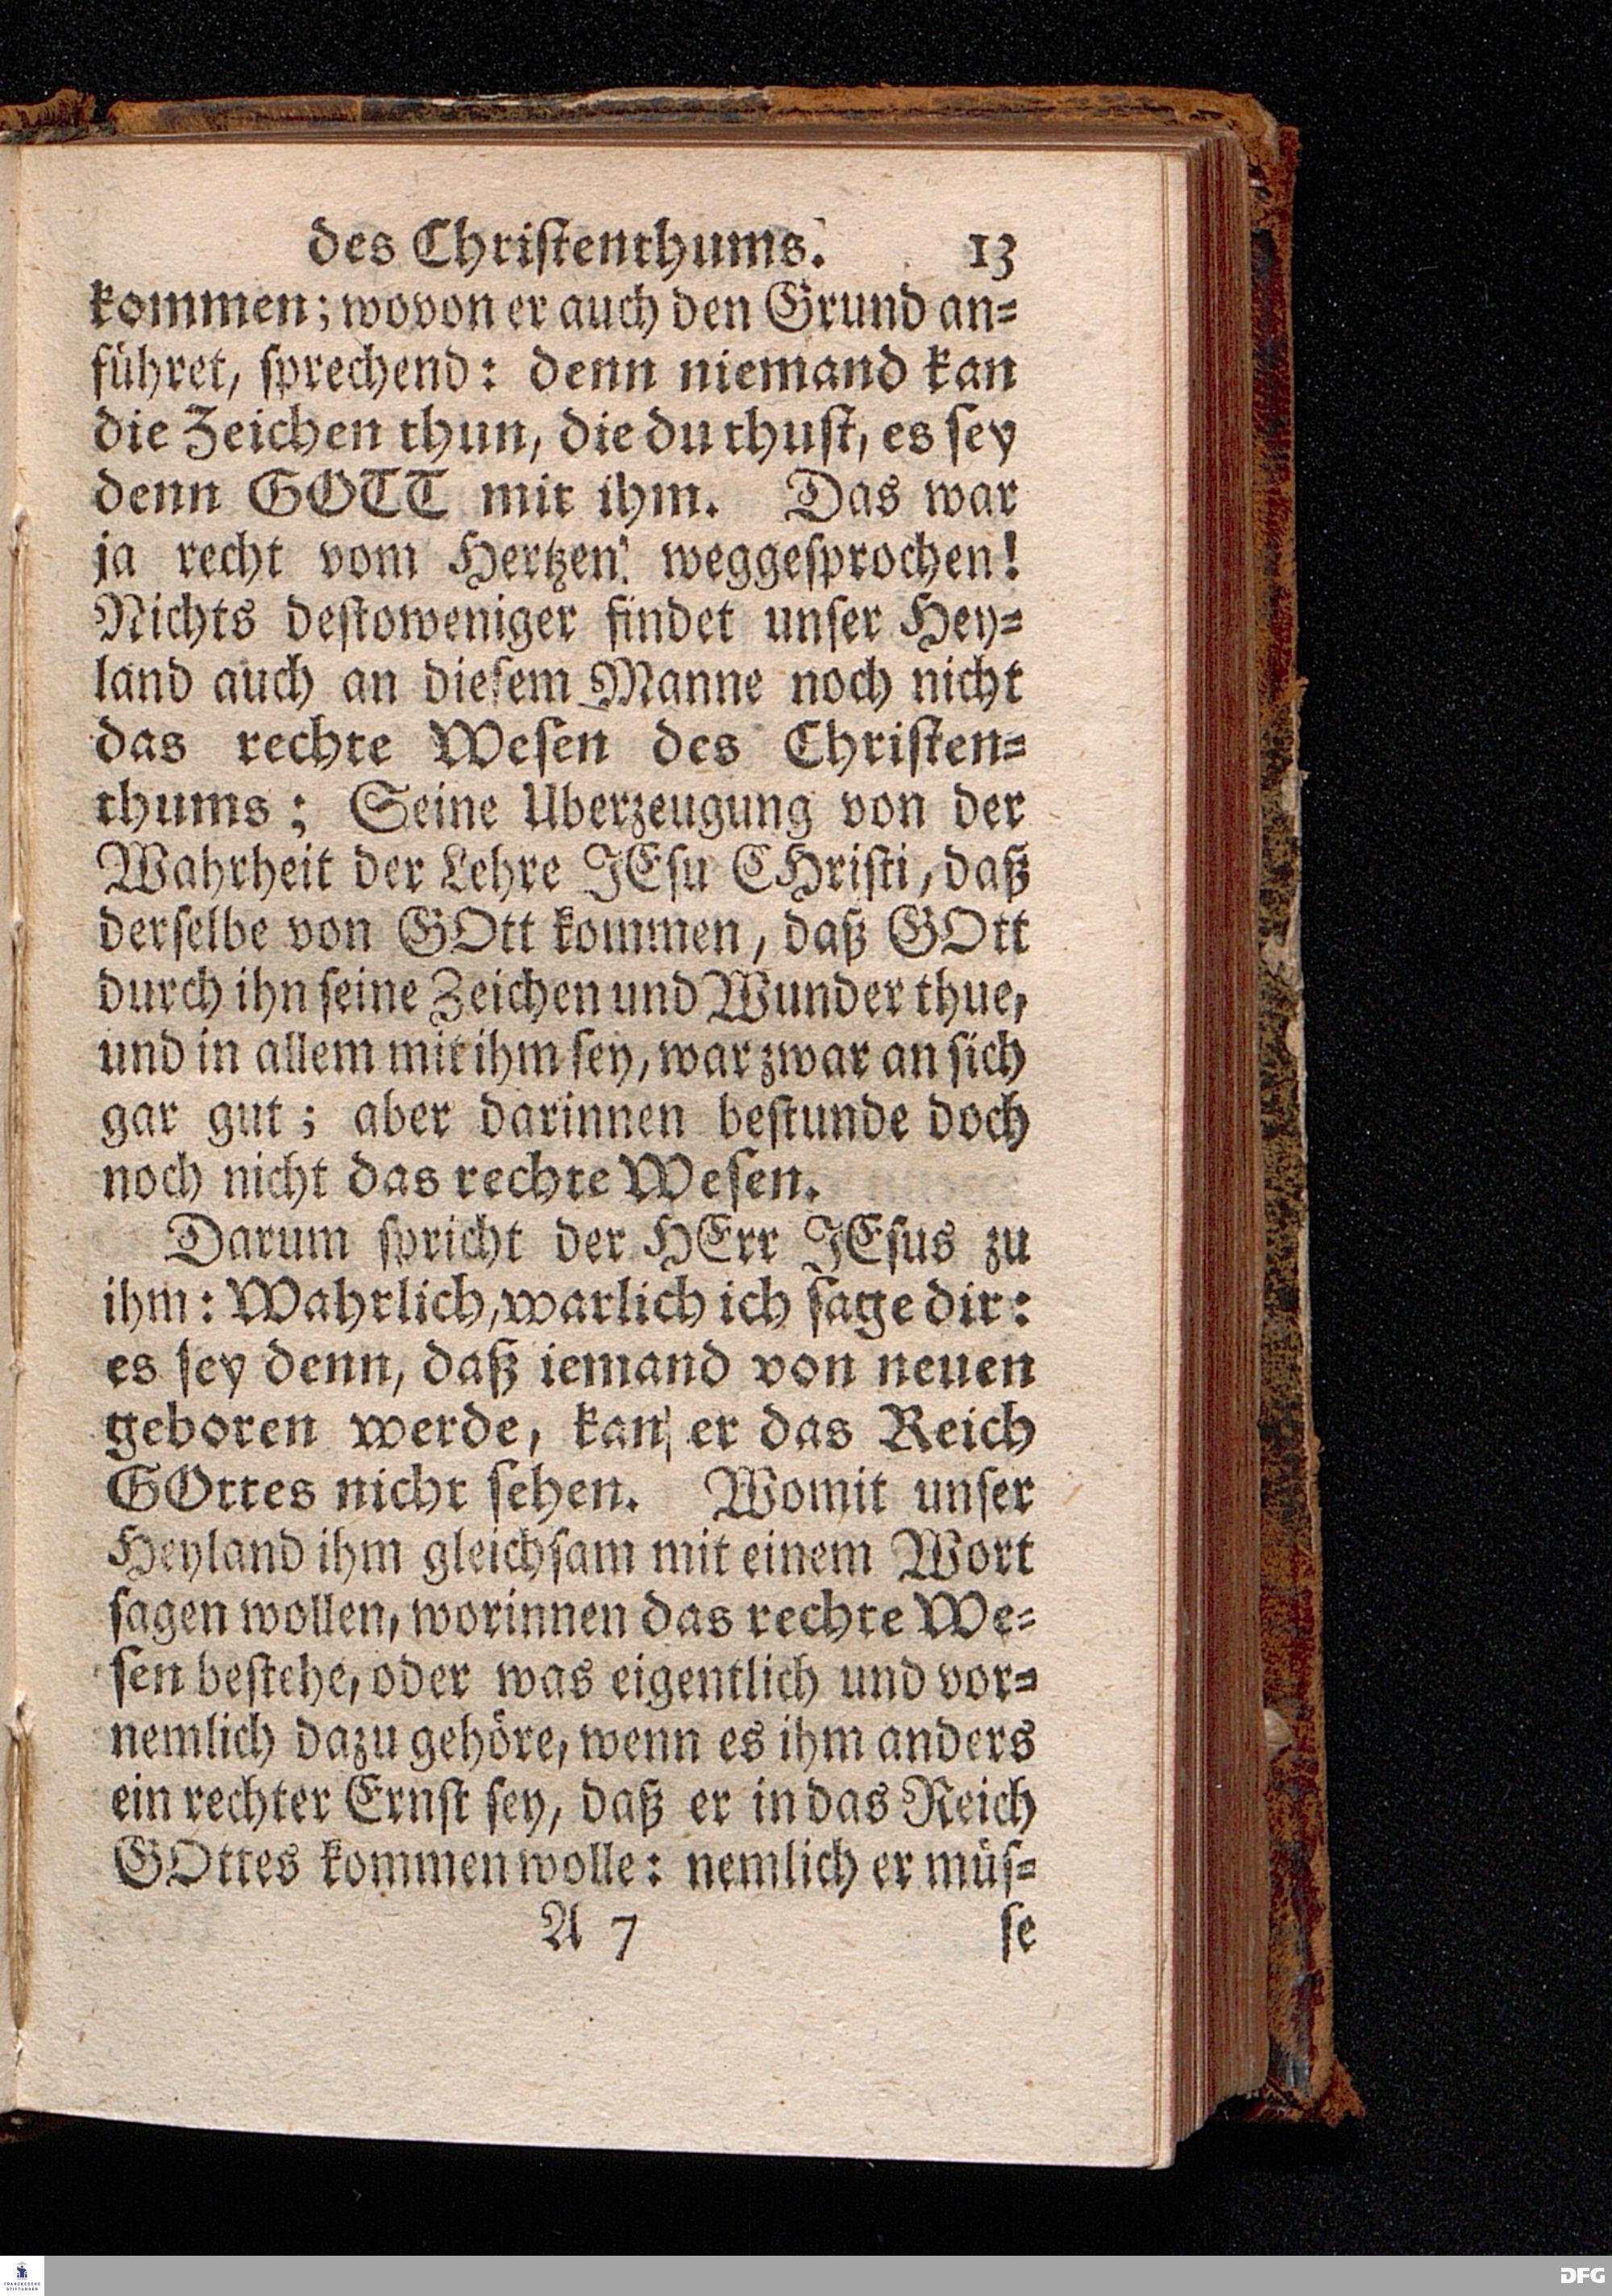 des Christenthums. 13
kommen; wovon er auch den Grund an=
führet, sprechend: denn niemand kan
die Zeichen thun, die du thust, es sey
denn GOTT mit ihm. Das war
ja recht vom Hertzen weggesprochen!
Nichts destoweniger findet unser Hey=
land auch an diesem Manne noch nicht
das rechte Wesen des Christen=
thums; Seine Uberzeugung von der
Wahrheit der Lehre JEsu CHristi, daß
derselbe von GOtt kommen, daß GOtt
durch ihn seine Zeichen und Wunder thue,
und in allem mit ihm sey, war zwar an sich
gar gut; aber darinnen bestunde doch
noch nicht das rechte Wesen.
Darum spricht der HErr JEsus zu
ihm: Wahrlich, warlich ich sage dir:
es sey denn, daß iemand von neuen
geboren werde, kan er das Reich
GOttes nicht sehen. Womit unser
Heyland ihm gleichsam mit einem Wort
sagen wollen, worinnen das rechte We=
sen bestehe, oder was eigentlich und vor=
nemlich dazu gehöre, wenn es ihm anders
ein rechter Ernst sey, daß er in das Reich
GOttes kommen wolle: nemlich er müs=
A 7 se
FRANCKESCHE
STIFTUNGEN
DFG